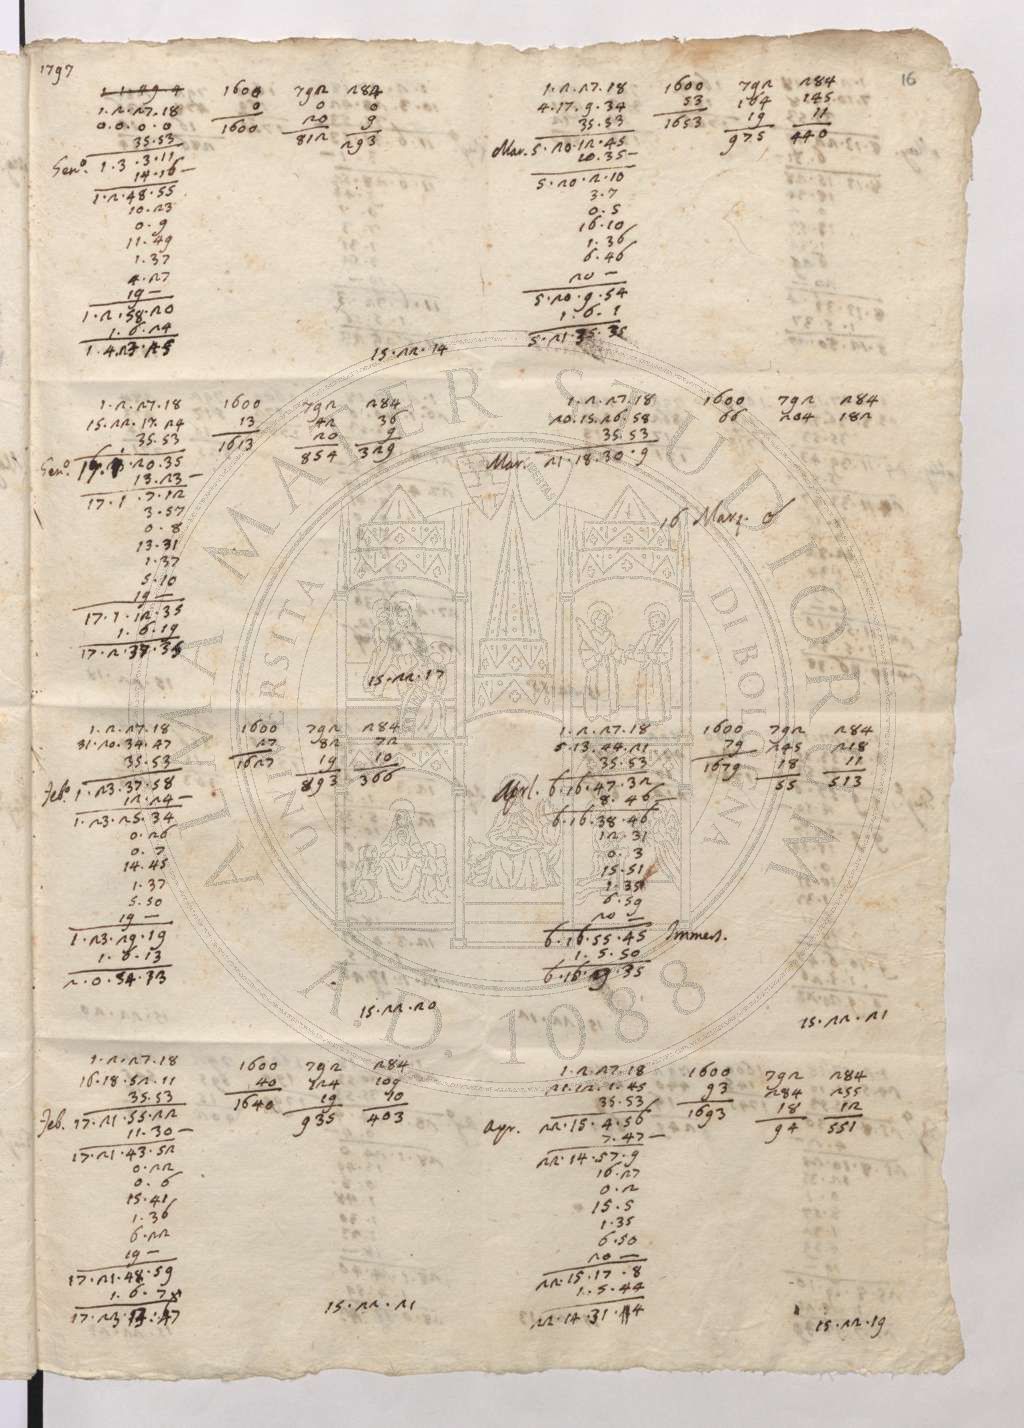 1797
16
1. 2. 27. 18 1600 792 284
0. 0. 0. 0 0 0 0
35. 53 1600 20 9
Gen.º 1. 3. 3. 11 812 293
14. 16 —
1. 2. 48. 55
10. 23
0. 9
11. 49
1. 37
4. 27
19 —
1. 2. 58. 20
1. 6. 24
15. 22. 14
1. 2. 27. 18 1600 792 284
15. 22. 17. 24 13 42 36
35. 53 1613 20 9
Gen.º 854 329
13. 23 —
17. 1. 7. 12
3. 57
0. 8
13. 31
1. 37
5. 10
19 —
17. 1. 12. 35
1. 6. 19
17. 2. 37. 35
15. 22. 17
1. 2. 27. 18 1600 792 284
31. 20. 34. 47 27 82 72
35. 53 1627 19 10
Feb.º 1. 23. 37. 58 893 366
12. 24 —
1. 23. 25. 34
0. 26
0. 7
14. 45
1. 37
5. 50
19 —
1. 23. 29. 19
1. 6. 13
2. 0. 54. 33
15. 22. 20
1. 2. 27. 18 1600 792 284
16. 18. 52. 11 40 124 109
35. 53 1640 19 10
Feb. 17. 21. 55. 22 935 403
11. 30 —
17. 21. 43. 52
0. 22
0. 6
15. 41
1. 36
6. 22
19 —
17. 21. 48. 59
1. 6. 7
15. 22. 21
1. 2. 27. 18 1600 792 284
4. 17. 9. 34 53 164 145
35. 53 1653 19 11
Mar. 5. 20. 12. 45 975 440
10. 35 —
5. 20. 2. 10
3. 7
0. 5
16. 10
1. 36
6. 46
20 —
5. 20. 9. 54
1. 6. 1
5. 21. 35. 35
1. 2. 27. 18 1600 792 284
20. 15. 26. 58 66 204 182
35. 53
Mar. 21. 18. 30. 9
16 Marz.
1. 2. 27. 18 1600 792 284
5. 13. 44. 21 79 245 218
35. 53 1679 18 11
Aprl. 6. 16. 47. 32 55 513
8. 46 —
6. 16. 38. 46
12. 31
0. 3
15. 51
1. 35
6. 59
20 —
6. 16. 55. 45 Immers.
1. 5. 50
15. 22. 21
1. 2. 27. 18 1600 792 284
21. 12. 1. 45 93 284 255
35. 53 1693 18 12
Apr. 22. 15. 4. 56 94 551
7. 47 —
22. 14. 57. 9
16. 27
0. 2
15. 5
1. 35
6. 50
20 —
22. 15. 17. 8
1. 5. 44
15. 22. 19
ALMA MATER STUDIORUM
UNIVERSITA DI BOLOGNA
A.D. 1088